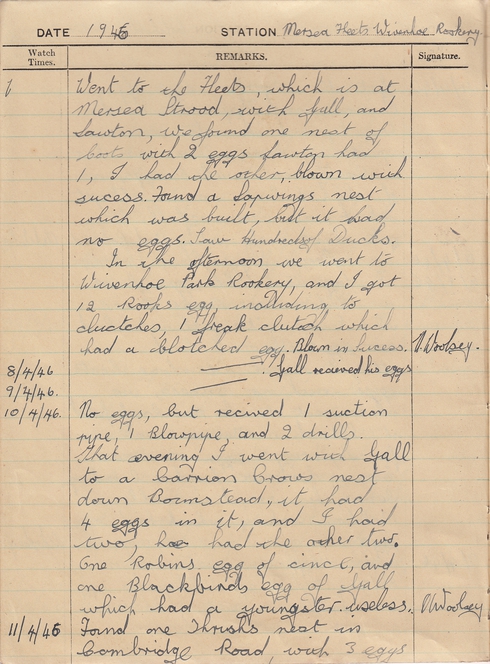 DATE 1946 STATION Mersea Fleets Wivenhoe Rookery.
Watch Times. REMARKS. Signature.
Went to the Fleets, which is at
Mersea Strood, with Gall, and
Lawton, we found one nest of
Coots with 2 eggs Lawton had
1, I had the other, blown with
sucess. Found a Lapwings nest
which was built, but it had
no eggs. Saw Hundreds of Ducks.
In the afternoon we went to
Wivenhoe Park Rookery, and I got
12 Rooks egg including to
cluctches, 1 freak clutch which
had a blotched egg. Blown in Sucess. Woolsey.
8/4/46 Gall recived his eggs
9/4/46.
10/4/46. No eggs, but recived 1 suction
pipe, 1 Blowpipe, and 2 drills.
That evening I went with Gall
to a Carrion Crows nest
down Bormstead, it had
4 eggs in it, and I had
two, he had the other two.
One Robins egg of cinc 6, and
one Blackbirds egg of Gall
which had a youngster. useless. Woolsey
11/4/46 Found one Thrush's nest in
Cambridge Road, with 3 eggs